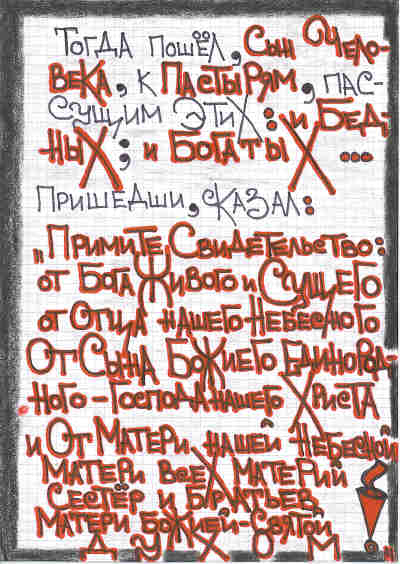 Тогда пошёл, Сын Чело-
века, к Пастырям, пас-
сущим этих: и Бед-
ных; и Богаты х ...
Пришедши, сказал:
„Примите, Свидетельство:
от Бога Живого и Сущего
от Отца нашего Небесного
От Сына Божиего Единород-
ного - Господа нашего Христа
и От Матери нашей Небесной
Матери всех Матерей
Сестёр и Братьев,
Матери Божией - Святой
Духом!"